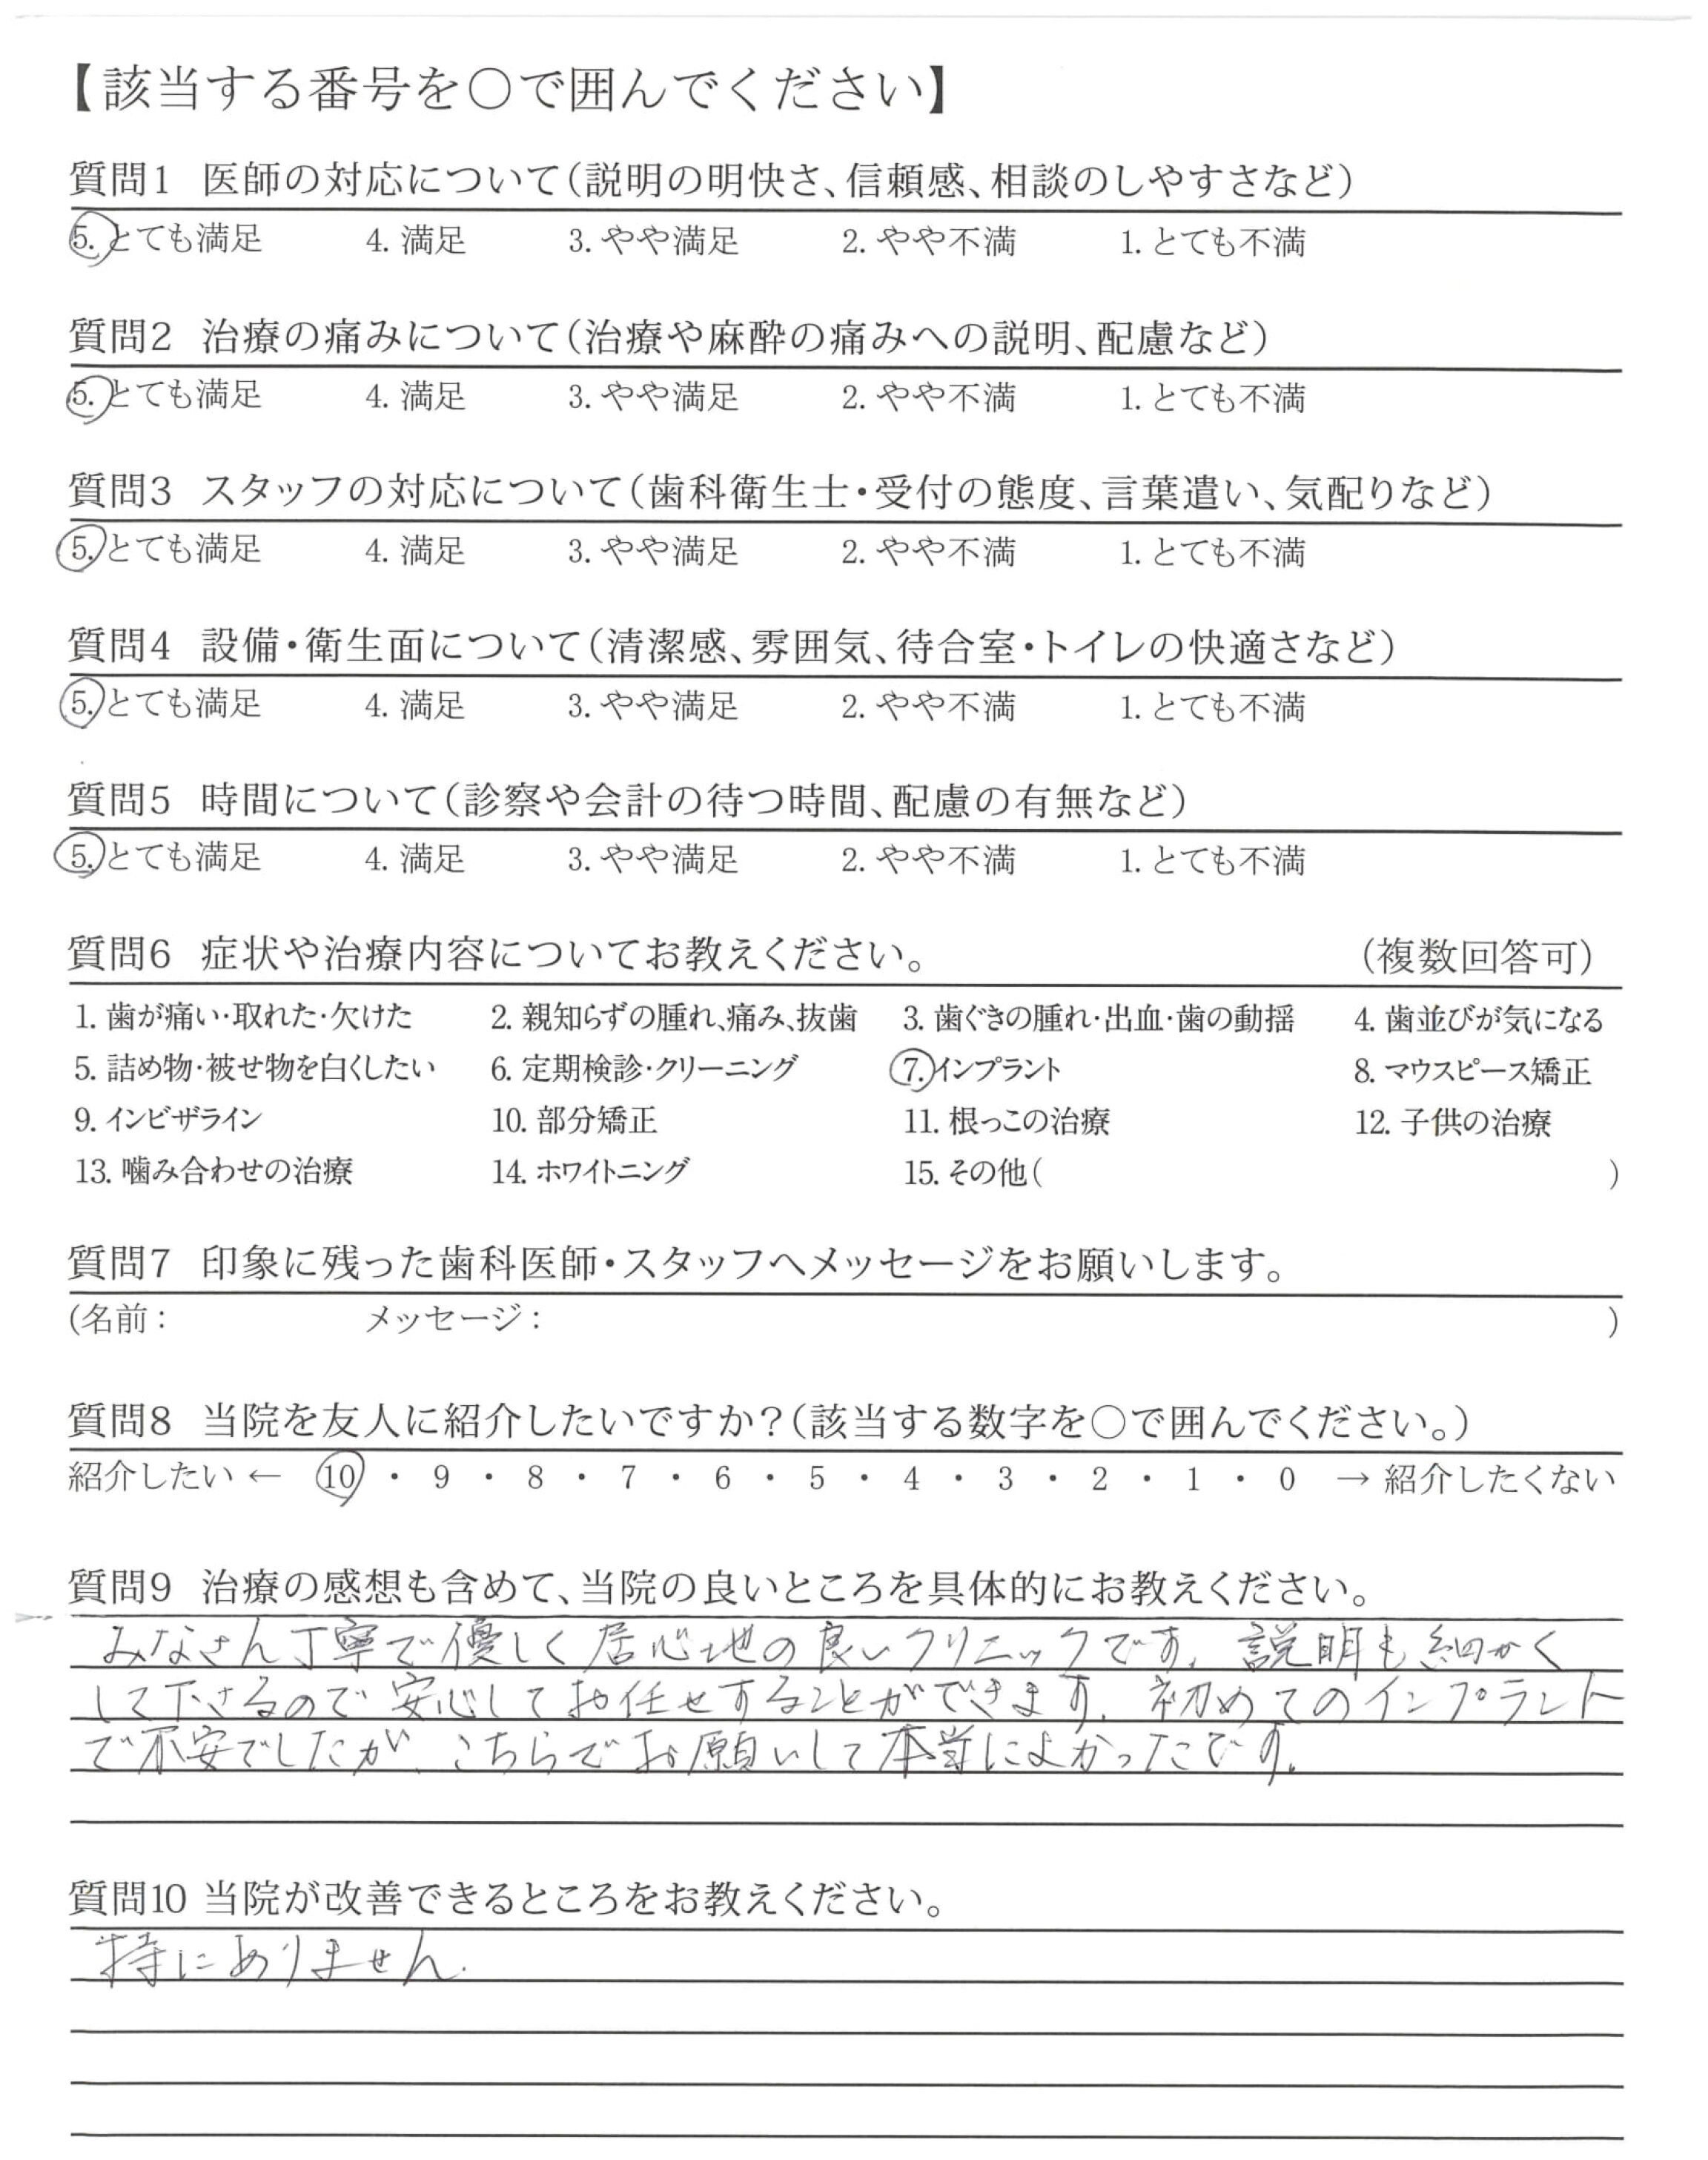 【該当する番号を〇で囲んでください】
質問1 医師の対応について(説明の明快さ、信頼感、相談のしやすさなど)
5. とても満足 4. 満足 3. やや満足 2. やや不満 1. とても不満
質問2 治療の痛みについて(治療や麻酔の痛みへの説明、配慮など)
5. とても満足 4. 満足 3. やや満足 2. やや不満 1. とても不満
質問3 スタッフの対応について(歯科衛生士・受付の態度、言葉遣い、気配りなど)
5. とても満足 4. 満足 3. やや満足 2. やや不満 1. とても不満
質問4 設備・衛生面について(清潔感、雰囲気、待合室・トイレの快適さなど)
5. とても満足 4. 満足 3. やや満足 2. やや不満 1. とても不満
質問5 時間について(診察や会計の待つ時間、配慮の有無など)
5. とても満足 4. 満足 3. やや満足 2. やや不満 1. とても不満
質問6 症状や治療内容についてお教えください。 (複数回答可)
1. 歯が痛い・取れた・欠けた 2. 親知らずの腫れ、痛み、抜歯 3. 歯ぐきの腫れ・出血・歯の動揺 4. 歯並びが気になる
5. 詰め物・被せ物を白くしたい 6. 定期検診・クリーニング 7. インプラント 8. マウスピース矯正
9. インビザライン 10. 部分矯正 11. 根っこの治療 12. 子供の治療
13. 噛み合わせの治療 14. ホワイトニング 15. その他( )
質問7 印象に残った歯科医師・スタッフへメッセージをお願いします。
(名前: メッセージ: )
質問8 当院を友人に紹介したいですか?(該当する数字を〇で囲んでください。)
紹介したい ← 10 ・ 9 ・ 8 ・ 7 ・ 6 ・ 5 ・ 4 ・ 3 ・ 2 ・ 1 ・ 0 → 紹介したくない
質問9 治療の感想も含めて、当院の良いところを具体的にお教えください。
みなさん丁寧で優しく居心地の良いクリニックです。説明も細かく
して下さるので安心してお任せすることができます。初めてのインプラント
で不安でしたが、こちらでお願いして本当によかったです。
質問10 当院が改善できるところをお教えください。
特にありません。